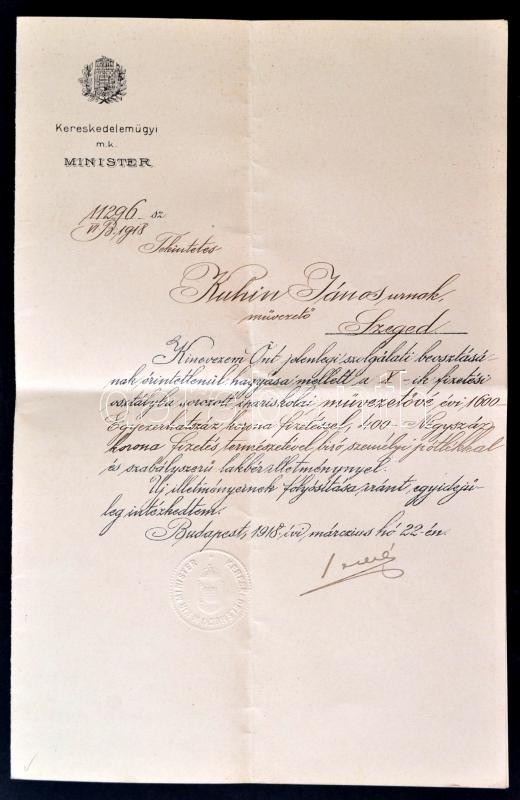 Kereskedelemügyi
m.k.
MINISTER.
11296 sz
VI B. 1918
Tekintetes
Kuhin János urnak,
művezető
Szeged.
Kinevezem Önt jelenlegi szolgálati beosztásá-
nak érintetlenül hagyása mellett a X-ik fizetési
osztályba sorozott ipariskolai művezetővé, évi 1600
Egyezerhatszáz korona fizetéssel, 400 Négyszáz
korona fizetés természetével biró személyi pótlékkal
és szabályszerű lakbérilletménynyel.
Uj illetményeinek folyósitása iránt, egyidejü-
leg intézkedtem.
Budapest, 1918. évi, márczius hó 22-én.